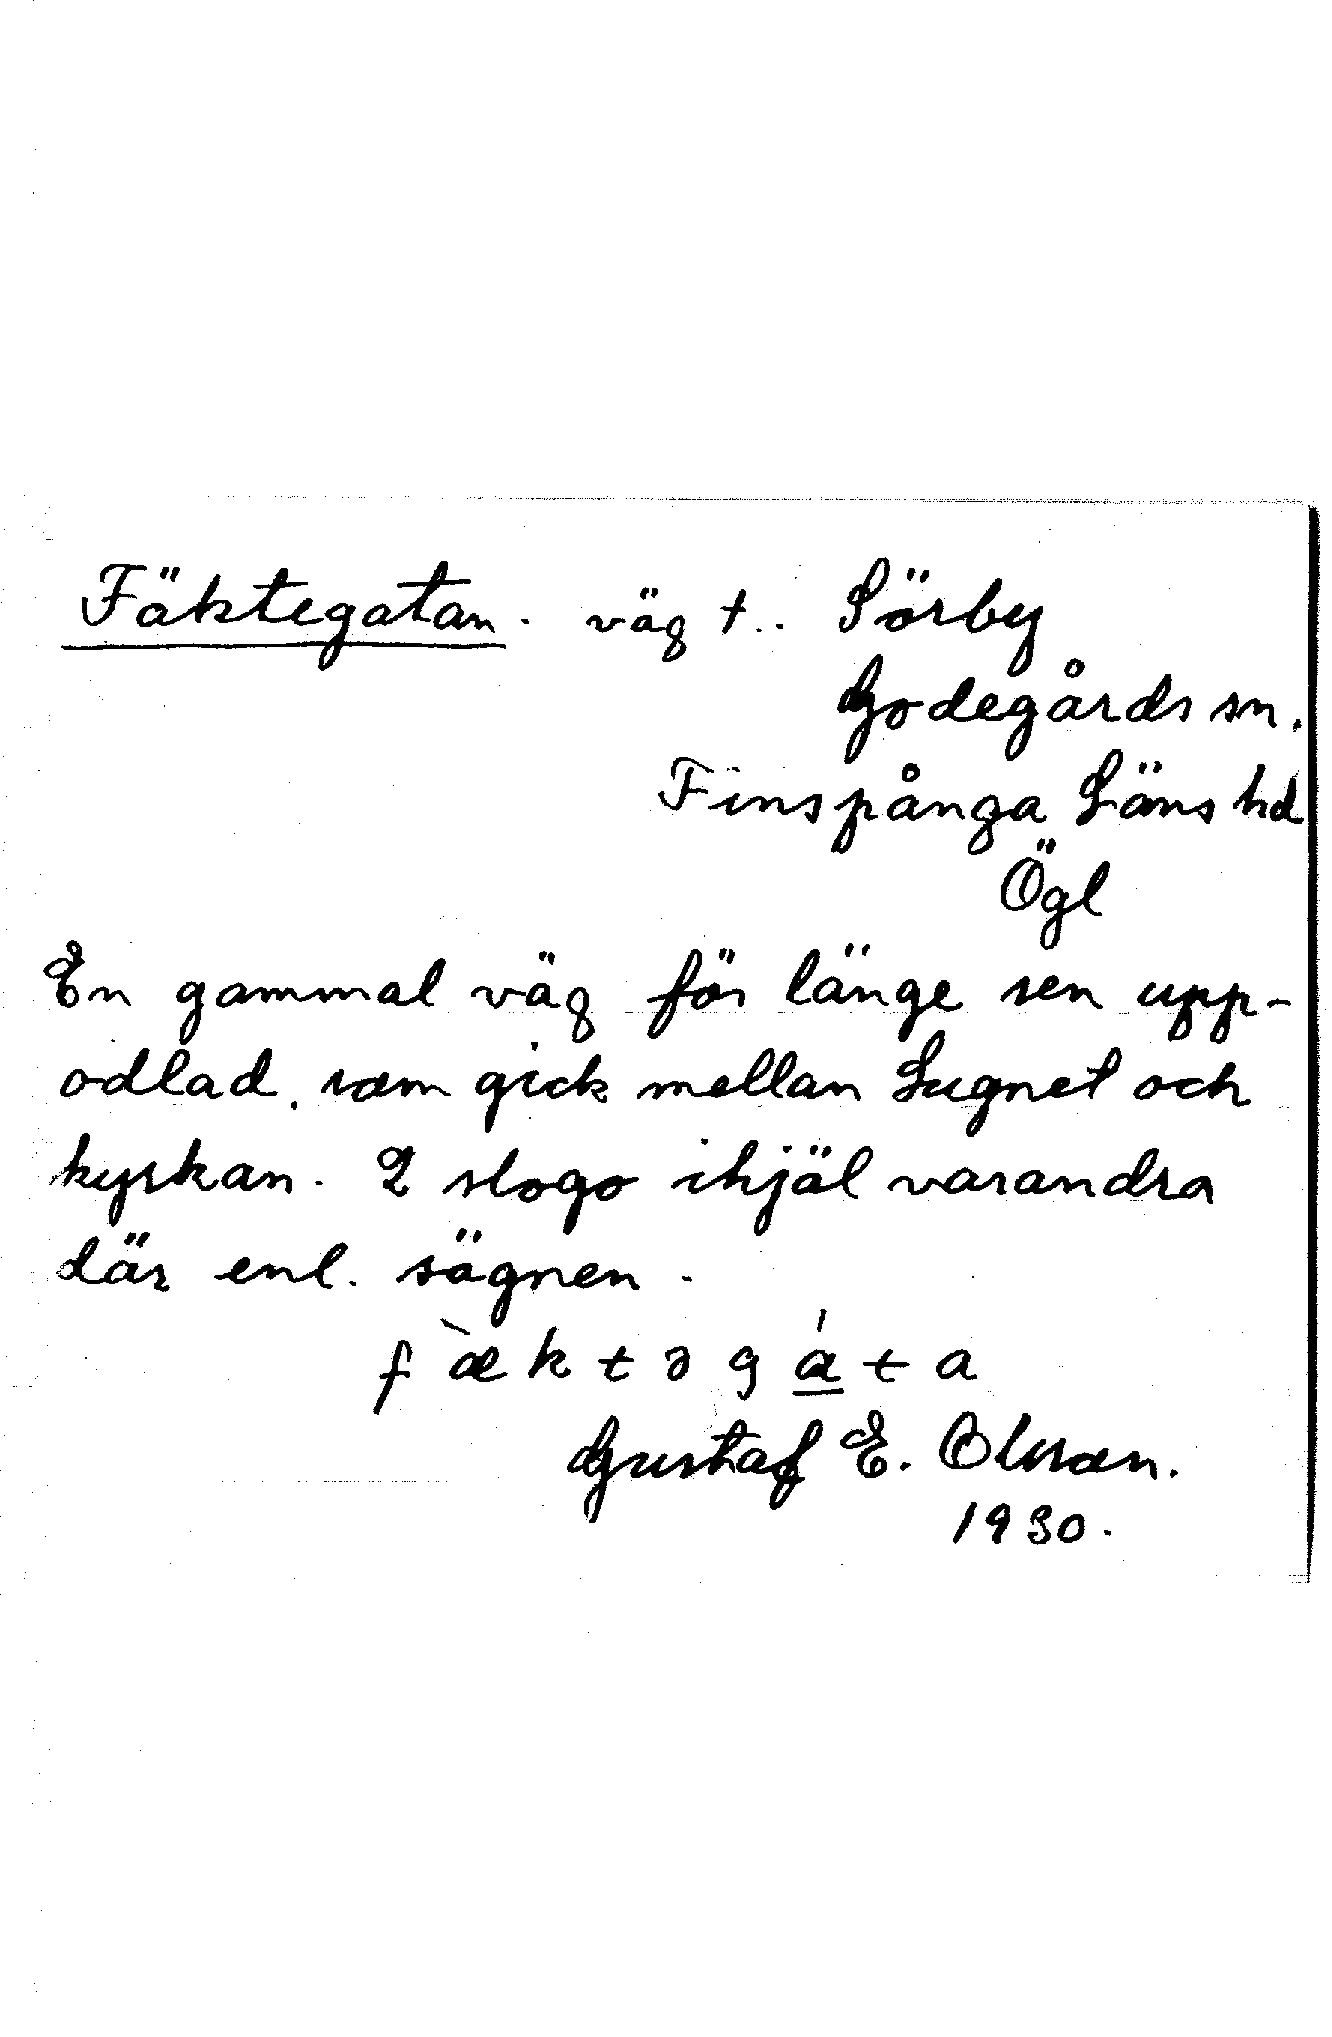 Fäktegatan. väg t.. Sörby
Godegårds sn.
Finspånga Läns hd
Ögl
En gammal väg för länge sen upp-
odlad, som gick mellan Lugnet och
kyrkan. 2 slogo ihjäl varandra
där enl. sägnen.
f æ̀ k t ə g á̲ t a
Gustaf E. Olsson.
1930.